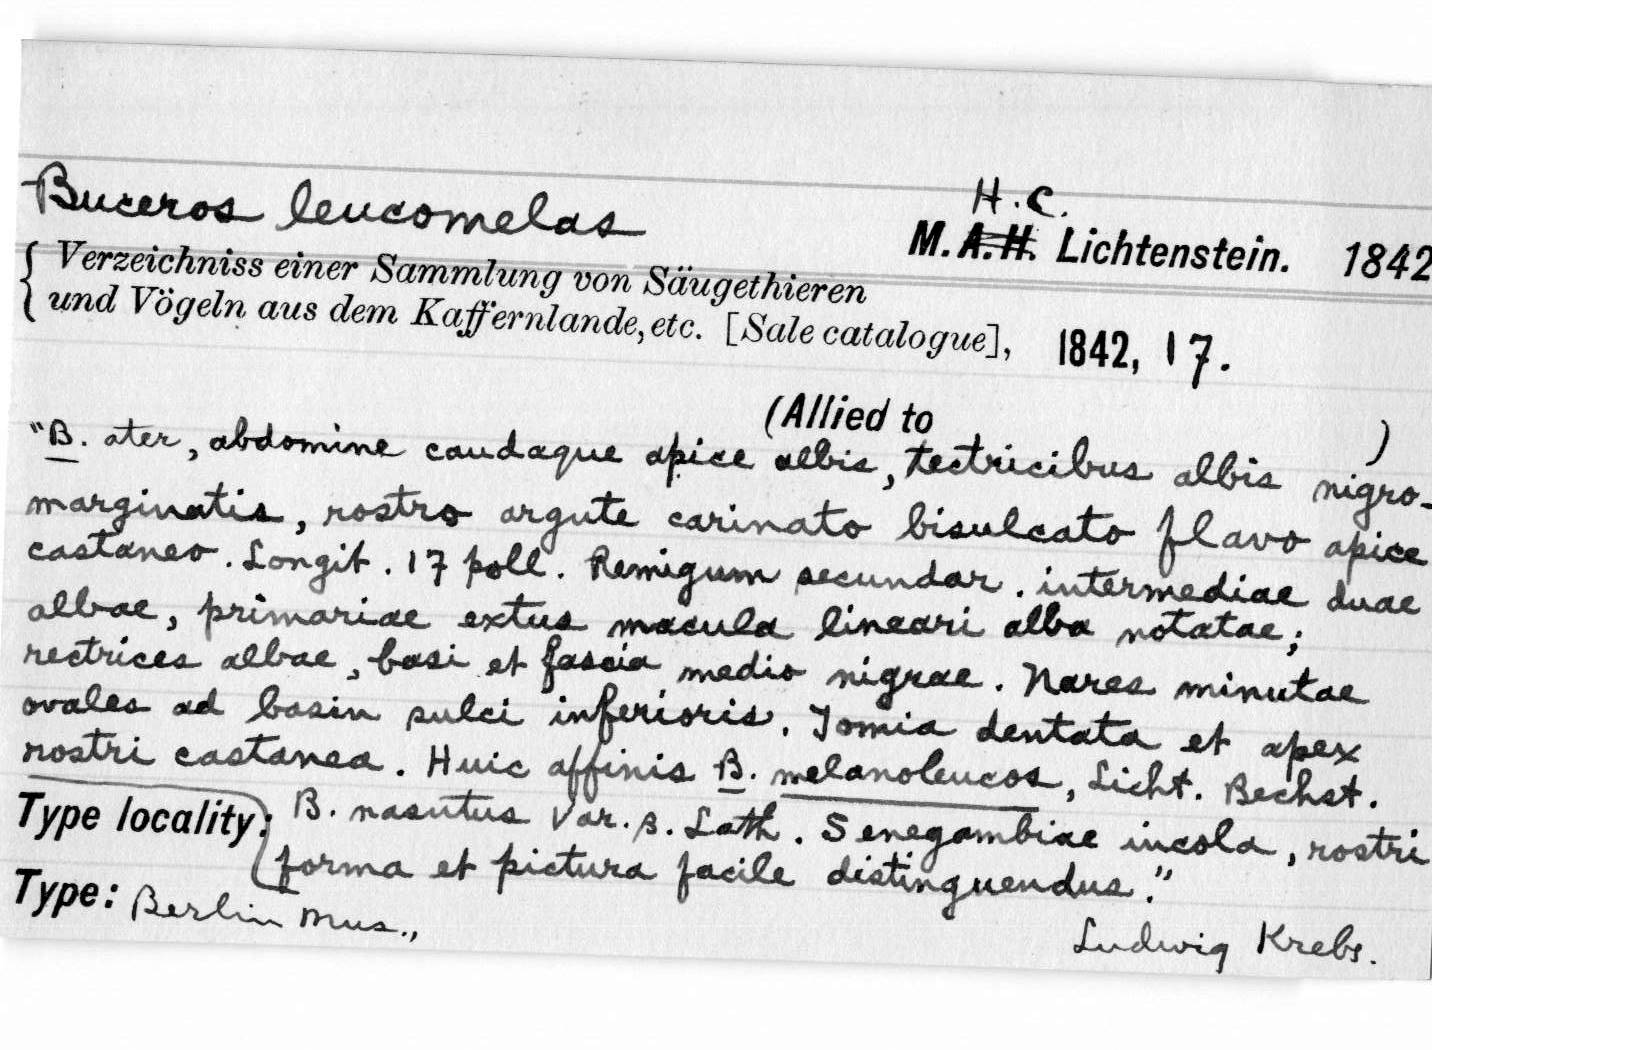 Buceros leucomelas
H. C.
M. A. H. Lichtenstein. 1842
Verzeichniss einer Sammlung von Säugethieren
und Vögeln aus dem Kaffernlande, etc. [Sale catalogue], 1842, 17.
(Allied to )
"B. ater, abdomine caudaque apice albis, tectricibus albis nigro-
marginatis, rostro argute carinato bisulcato flavo apice
castaneo. Longit. 17 poll. Remigum secundar. intermediae duae
albae, primariae extus macula lineari alba notatae;
rectrices albae, basi et fascia medio nigrae. Nares minutae
ovales ad basin sulci inferioris. Tomia dentata et apex
rostri castanea. Huic affinis B. melanoleucos, Licht. Bechst.
Type locality: B. nasutus Var. B. Lath. Senegambiae incola, rostri
forma et pictura facile distinguendus."
Type: Berlin Mus.,
Ludwig Krebs.